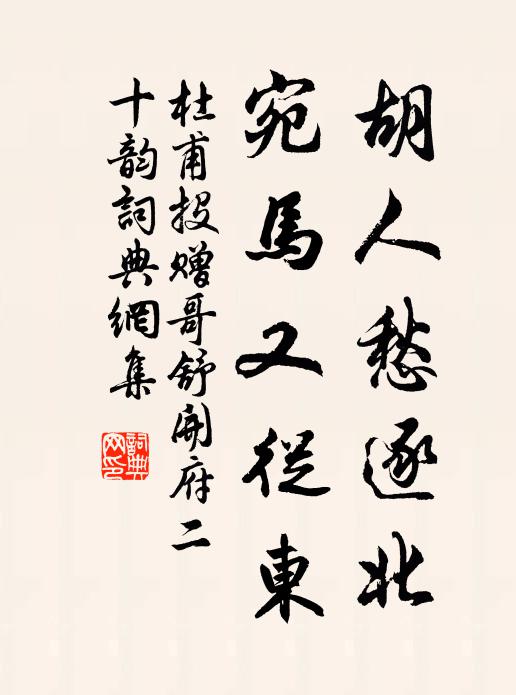 胡人愁逐北
宛馬又從東
杜甫投赠哥舒開府二
十韵詞典網集
詞典
网印